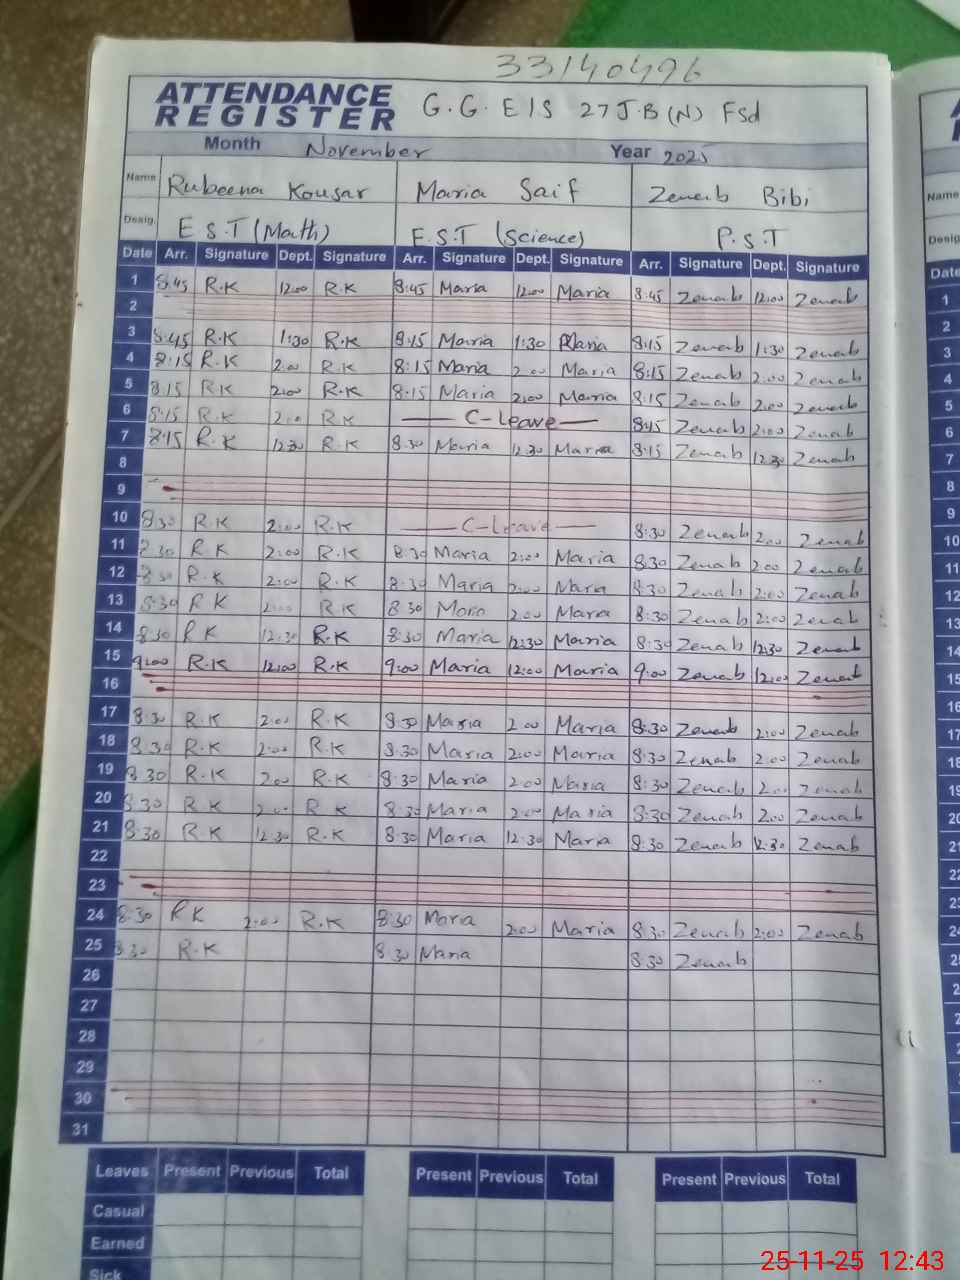 33140496
ATTENDANCE REGISTER G.G.E/S 27 J.B (N) Fsd
Month November Year 2025
Name Rubeena Kousar Maria Saif Zenab Bibi
Desig. E S.T (Math) E.S.T (Science) P.S.T
Date Arr. Signature Dept. Signature Arr. Signature Dept. Signature Arr. Signature Dept. Signature
1 8:45 R.K 12:00 R.K 8:45 Maria 12:00 Maria 8:45 Zenab 12:00 Zenab
2
3 8:45 R.K 1:30 R.K 8:15 Maria 1:30 Maria 8:15 Zenab 1:30 Zenab
4 8:15 R.K 2:00 R.K 8:15 Maria 2:00 Maria 8:15 Zenab 2:00 Zenab
5 8:15 R.K 2:00 R.K 8:15 Maria 2:00 Maria 8:15 Zenab 2:00 Zenab
6 8:15 R.K 2:00 R.K C-Leave 8:15 Zenab 2:00 Zenab
7 8:15 R.K 12:30 R.K 8:30 Maria 12:30 Maria 8:15 Zenab 12:30 Zenab
8
9
10 8:30 R.K 2:00 R.K C-Leave 8:30 Zenab 2:00 Zenab
11 8:30 R.K 2:00 R.K 8:30 Maria 2:00 Maria 8:30 Zenab 2:00 Zenab
12 8:30 R.K 2:00 R.K 8:30 Maria 2:00 Maria 8:30 Zenab 2:00 Zenab
13 8:30 R K 2:00 R.K 8:30 Maria 2:00 Maria 8:30 Zenab 2:00 Zenab
14 8:30 R K 12:30 R.K 8:30 Maria 12:30 Maria 8:30 Zenab 12:30 Zenab
15 9:00 R.K 12:00 R.K 9:00 Maria 12:00 Maria 9:00 Zenab 12:00 Zenab
16
17 8:30 R.K 2:00 R.K 8:30 Maria 2:00 Maria 8:30 Zenab 2:00 Zenab
18 8:30 R.K 2:00 R.K 8:30 Maria 2:00 Maria 8:30 Zenab 2:00 Zenab
19 8:30 R.K 2:00 R.K 8:30 Maria 2:00 Maria 8:30 Zenab 2:00 Zenab
20 8:30 R.K 2:00 R K 8:30 Maria 2:00 Maria 8:30 Zenab 2:00 Zenab
21 8:30 R.K 12:30 R.K 8:30 Maria 12:30 Maria 8:30 Zenab 12:30 Zenab
22
23
24 8:30 R K 2:00 R.K 8:30 Maria 2:00 Maria 8:30 Zenab 2:00 Zenab
25 8:30 R.K 8:30 Maria 8:30 Zenab
26
27
28
29
30
31
Leaves Present Previous Total Present Previous Total Present Previous Total
Casual
Earned
Sick
25-11-25 12:43